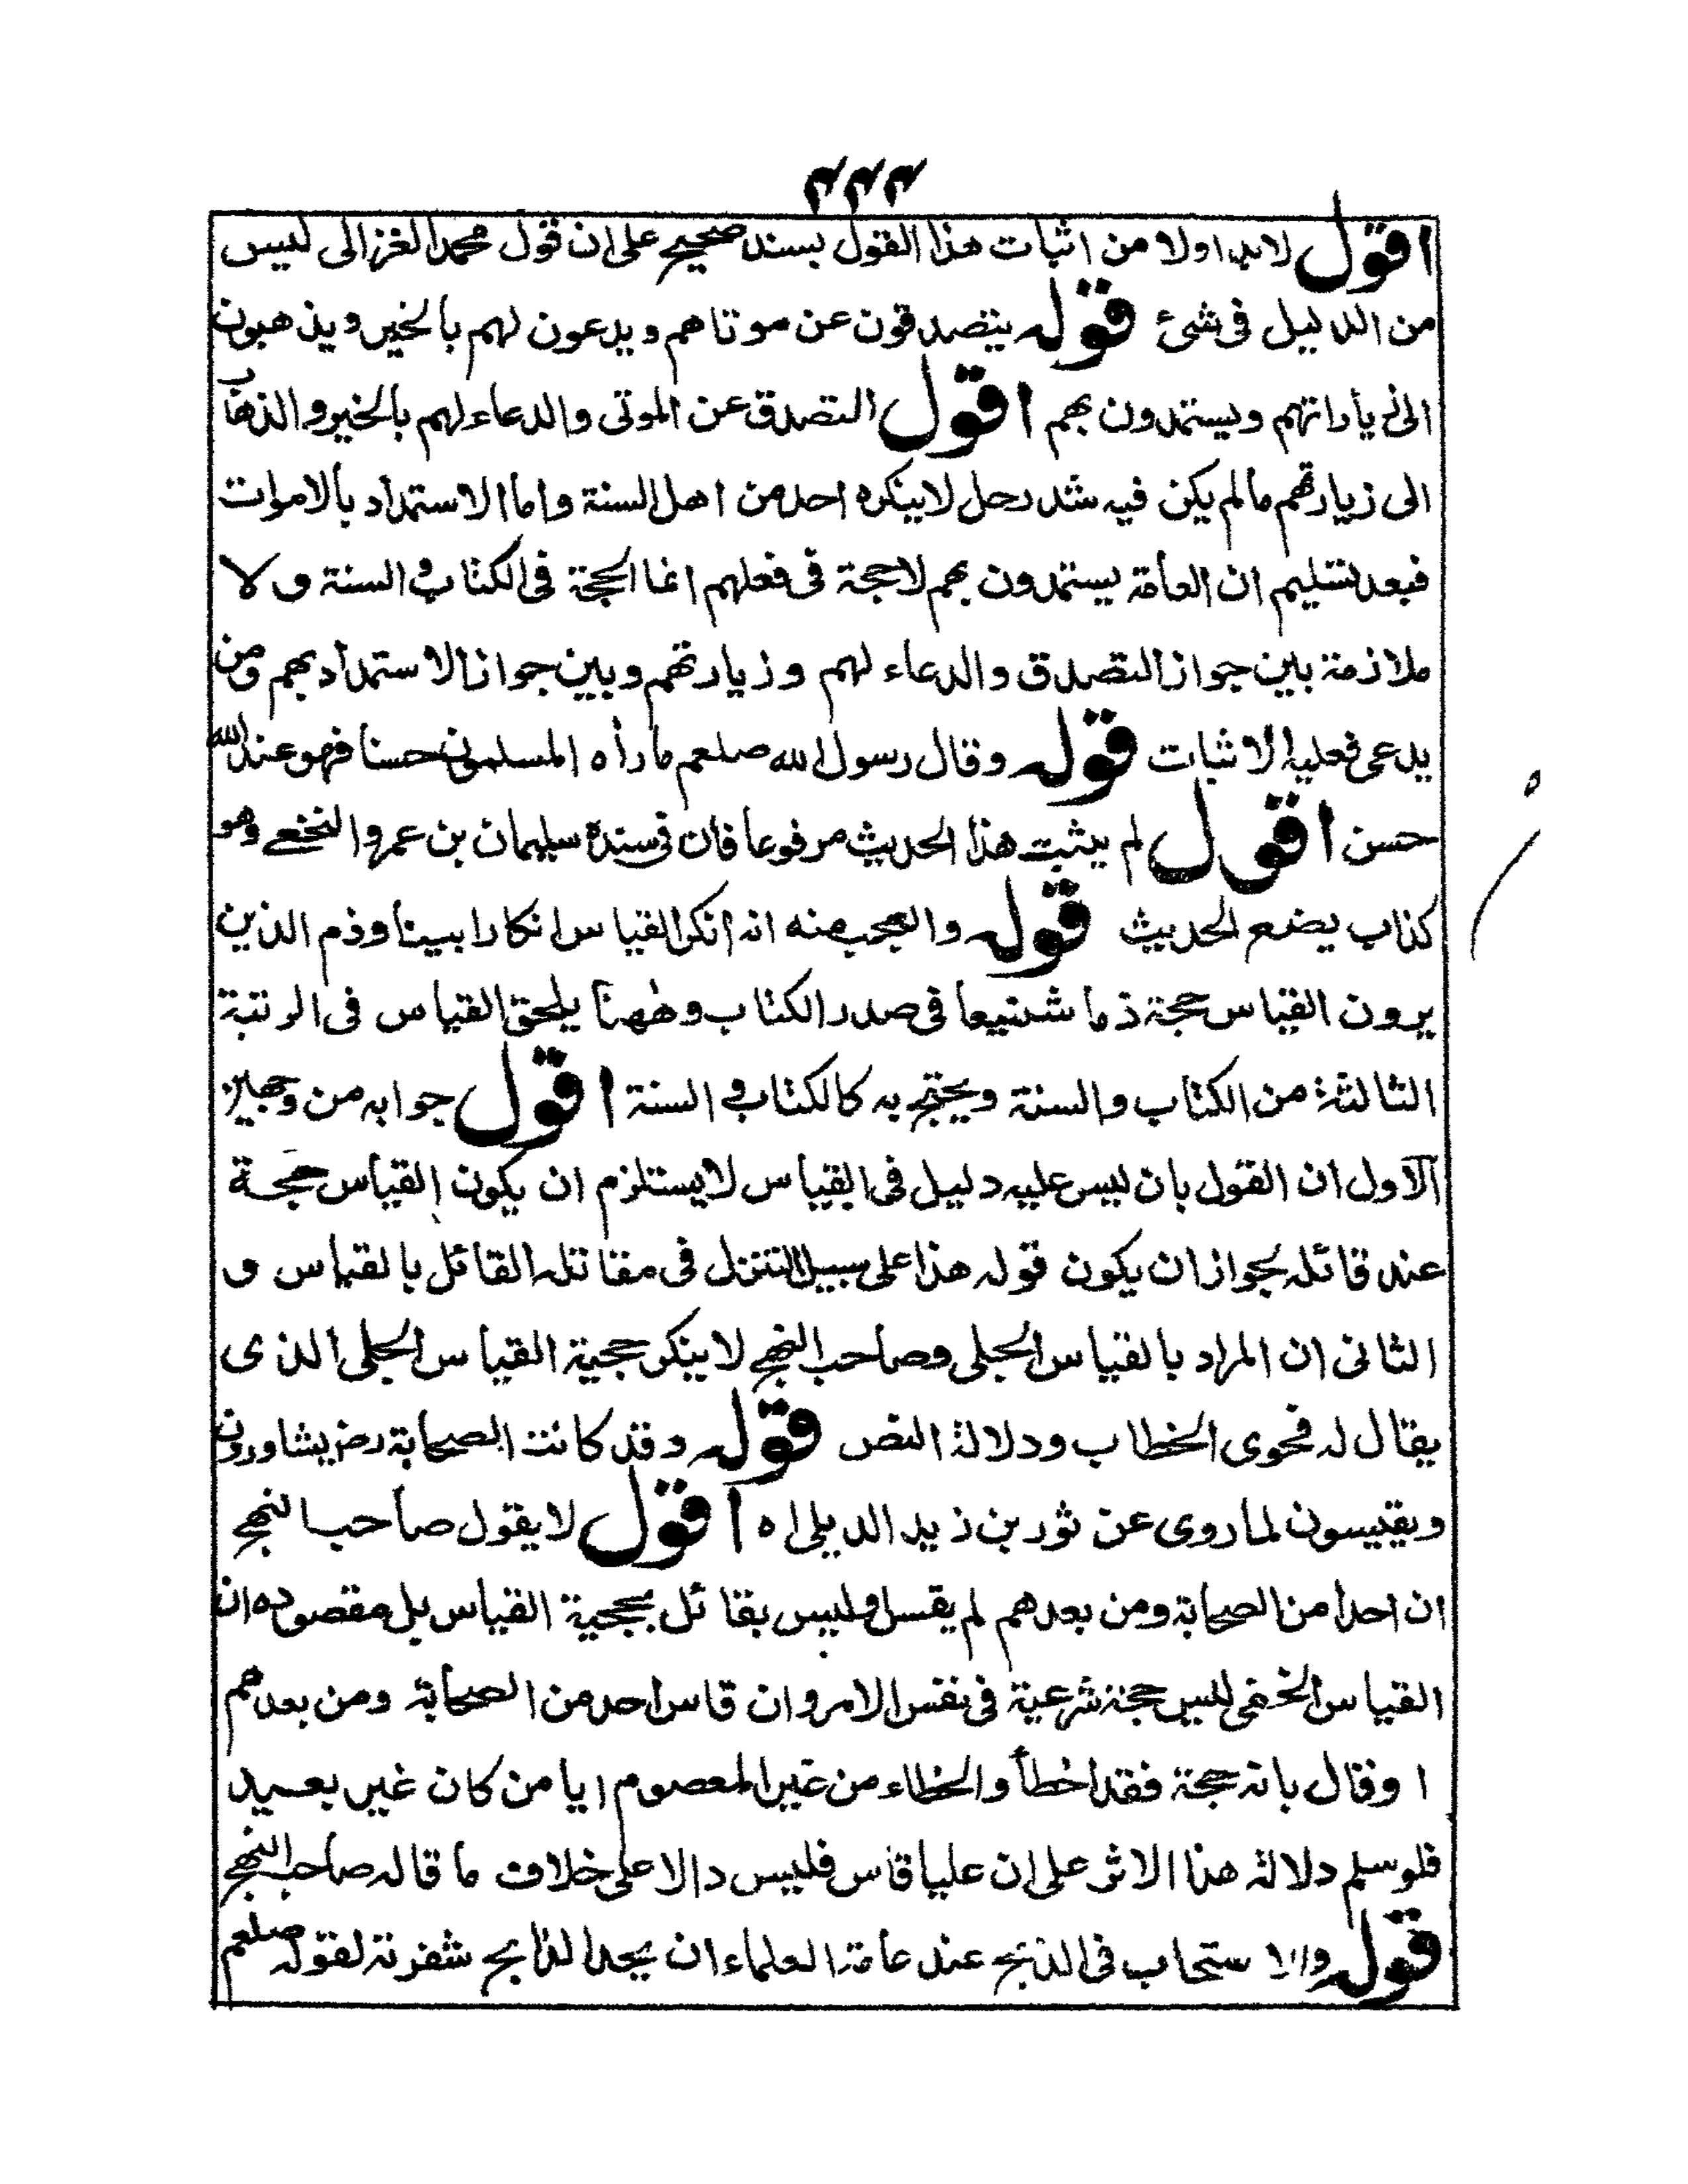 ٤٤٤
اقول لابد اولا من اثبات هذا القول بسند صحيح على ان قول محمد الغزالى ليس
من الدليل فى شئ قوله يتصدقون عن موتاهم ويدعون لهم بالخير ويذهبون
الى زياداتهم ويستمدون بهم اقول التصدق عن الموتى والدعاء لهم بالخير والذهاب
الى زيارتهم مالم يكن فيه شد رحل لاينكره احد من اهل السنة واما الاستمداد بالاموات
فبعد تسليم ان العامة يستمدون بهم لاحجة فى فعلهم انما الحجة فى الكتاب و السنة و لا
ملازمة بين جواز التصدق والدعاء لهم وزيارتهم وبين جواز الاستمداد بهم ومن
يدعى فعليه الاثبات قوله وقال رسول الله صلعم ماراه المسلمون حسنا فهو عند الله
حسن اقول لم يثبت هذا الحديث مرفوعا فان فى سنده سليمان بن عمرو النخعے وهو
كذاب يضع الحديث قوله والعجب منه انه انكر القياس انكارا بينا وذم الذين
يرون القياس حجة ذما شنيعا فى صدر الكتاب وههنا يلحق القياس فى الرتبة
الثالثة من الكتاب والسنة ويحتج به كالكتاب و السنة اقول جوابه من وجهين
الاول ان القول بان ليس عليه دليل فى القياس لايستلزم ان يكون القياس حجة
عند قائله لجواز ان يكون قوله هذا على سبيل التنزل فى مقابلة القائل بالقياس و
الثانى ان المراد بالقياس الجلى وصاحب النهج لاينكر حجية القياس الجلى الذى
يقال له فحوى الخطاب ودلالة النص قوله وقد كانت الصحابة رض يشاورون
ويقيسون لما روى عن ثور بن زيد الديلى اه اقول لايقول صاحب النهج
ان احدا من الصحابة ومن بعدهم لم يقس وليس بقائل بحجية القياس بل مقصوده ان
القياس الخفى ليس حجة شرعية فى نفس الامر وان قاس احد من الصحابة ومن بعدهم
او قال بانه حجة فقد اخطأ والخطاء من غير المعصوم ايا من كان غير بعيد
فلو سلم دلالة هذا الاثر على ان عليا قاس فليس دالا على خلاف ما قاله صاحب النهج
قوله والاستحاب فى الذبح عند عامة العلماء ان يحد الذابح شفرته لقوله صلعم